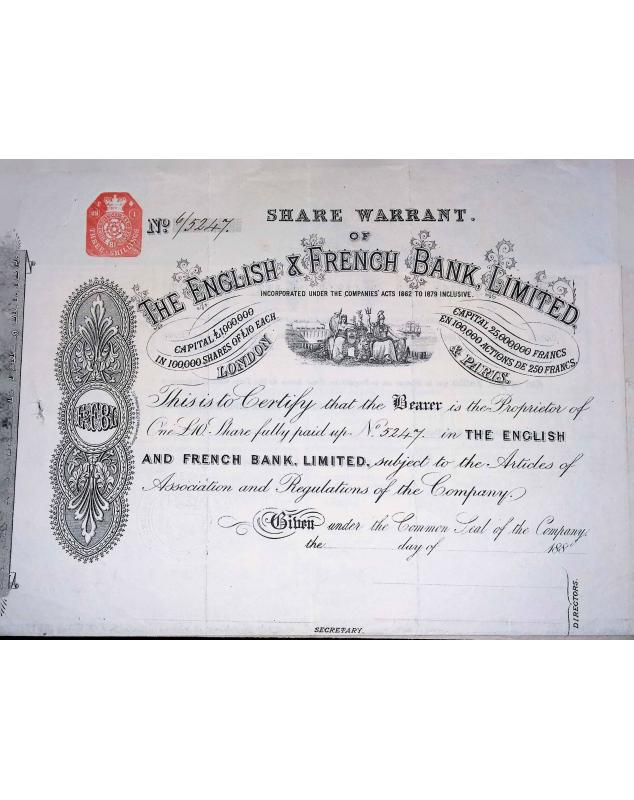 THREE SHILLINGS
No. 6/5247.
SHARE WARRANT.
OF
THE ENGLISH & FRENCH BANK, LIMITED
INCORPORATED UNDER THE COMPANIES' ACTS 1862 TO 1879 INCLUSIVE.
CAPITAL £1,000,000
IN 100,000 SHARES OF £10 EACH
LONDON
CAPITAL 25,000,000 FRANCS
EN 100,000 ACTIONS DE 250 FRANCS.
& PARIS.
This is to Certify that the Bearer is the Proprietor of
One £10. Share fully paid up No. 5247. in THE ENGLISH
AND FRENCH BANK, LIMITED, subject to the Articles of
Association and Regulations of the Company.
Given under the Common Seal of the Company,
the day of 188
DIRECTORS.
SECRETARY.